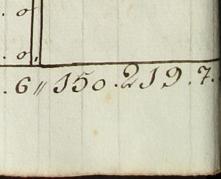 . o
. o,
. 6 〃 150. 219. 7.